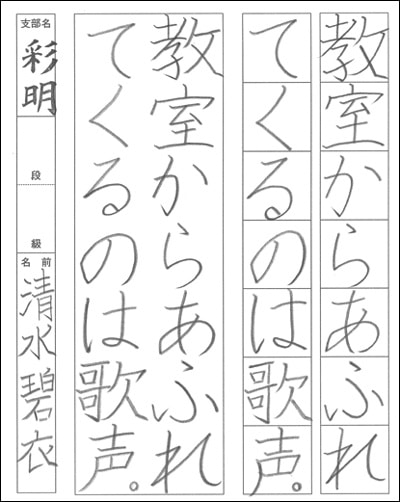 教室からあふれ
てくるのは歌声。
教室からあふれ
てくるのは歌声。
支部名
彩明
段
級
名前
清水碧衣